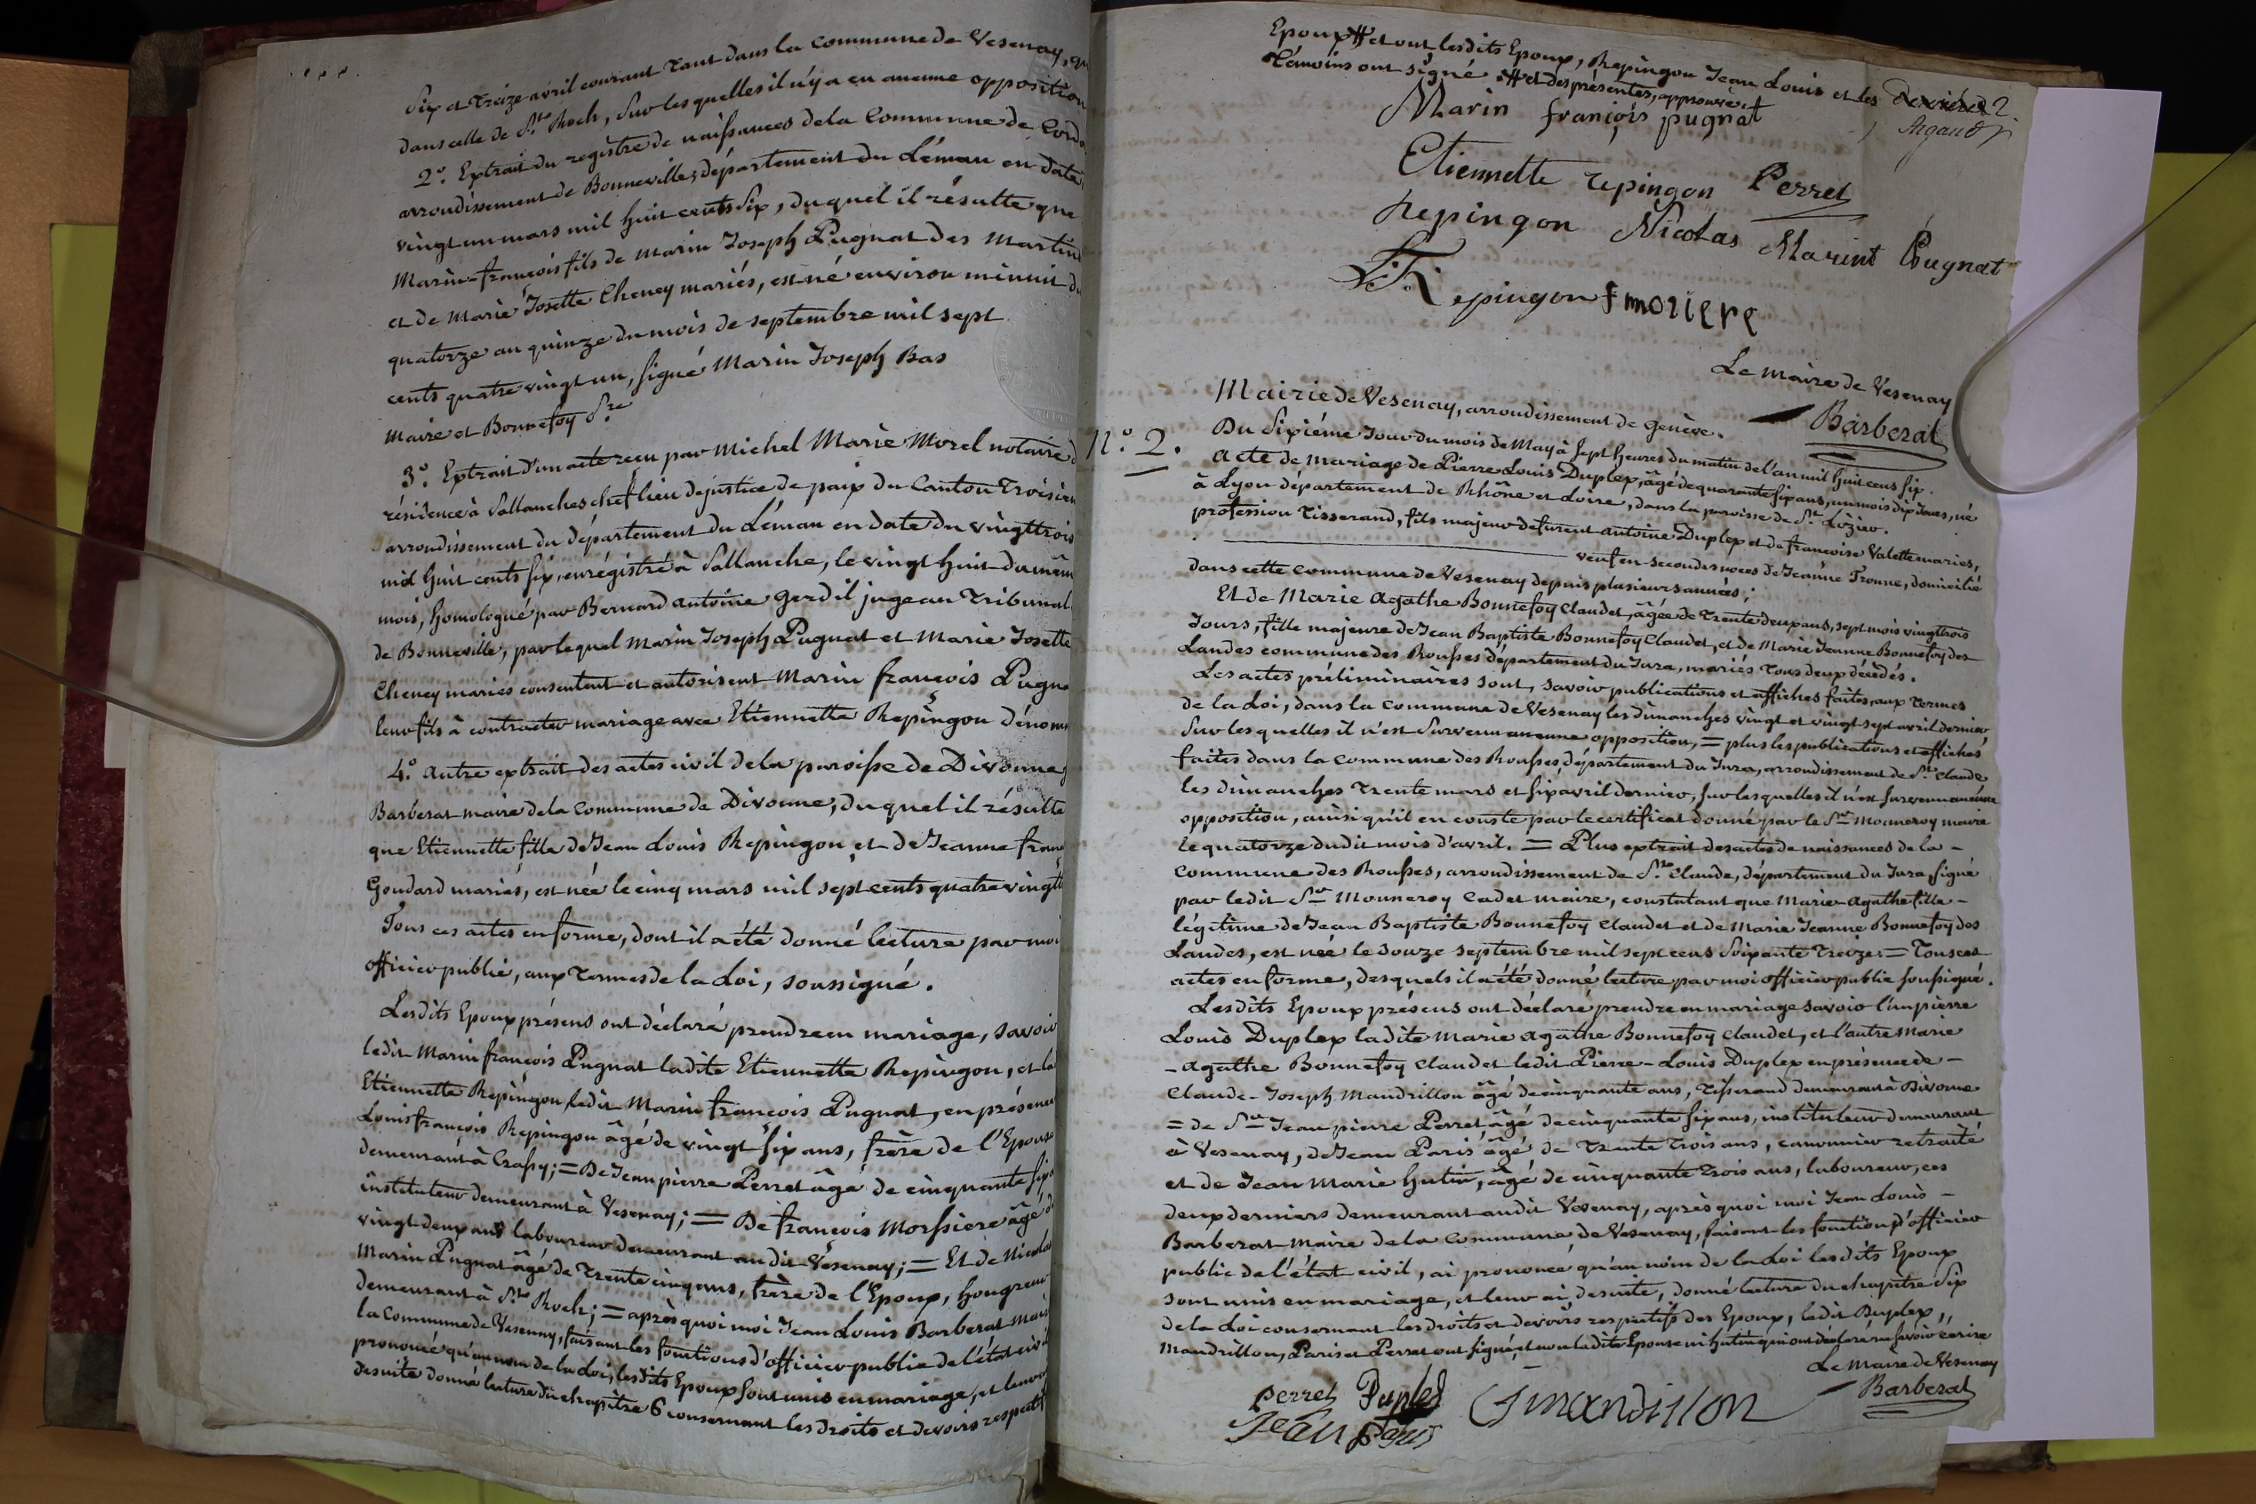 Six et Treize avril courant tant dans la commune de Vesenay, qu
dans celle de St. Roch, sur lesquelles il n'y a eu aucune opposition
2.° Extrait du registre de naissances de la Commune de Cordo
arrondissement de Bonneville, département du Léman en date
vingt un mars mil huit cents six, duquel il résulte que
Marin-françois fils de Marin Joseph Pugnat des Martin
et de Marie Josette Cheney mariés, est né environ minuit du
quatorze au quinze du mois de septembre mil sept
cents quatre vingt un, signé Marin Joseph Bas
maire et Bonnefoy S.re
3.° Extrait d'un acte reçu par Michel Marie Morel notaire
résidence à Sallanches chef lieu de justice de paix du Canton Troisièm
arrondissement du département du Léman en date du vingttrois
mil huit cents six, enrégistré à Sallanche, le vingt huit du mêm
mois, homologué par Bernard antoine gerdil juge au Tribunal
de Bonneville, par lequel Marin Joseph Pugnat et Marie Josette
Cheney mariés consentent et autorisent Marin françois Pugna
leur fils à contracter mariage avec Etiennette Repingon dénom
4.° autre extrait des actes civil de la paroisse de Divonne,
Barberat maire de la commune de Divonne, duquel il résulte
que Etiennette fille de Jean Louis Repingon et de Jeanne fran
Goudard mariés, est née le cinq mars mil sept cents quatre vingt
Tous ces actes en forme, dont il a été donné lecture par moi
officier public, aux Termes de la Loi, soussigné.
Lesdits Epoux présens ont déclaré prendre en mariage, savoir
ledit Marin françois Pugnat ladite Etiennette Repingon, et la
Etiennette Repingon ledit Marin françois Pugnat, en présence
Louis françois Repingon âgé de vingt six ans, frère de l'Epouse
demeurant à Crassy; = De Jean pierre Perret âgé de cinquante six
instituteur demeurant à Vesenay; = De françois Morssiere âgé d
vingt deux ans laboureur demeurant audit Vesenay; = Et de Nicolas
Marin Pugnat âgé de Trente cinq ans, frère de l'Epoux, hongreur
demeurant à St. Roch; = après quoi moi Jean Louis Barberat mair
la Commune de Vesenay, faisant les fonctions d'officier public de l'état civil
prononcé qu'au nom de la loi, lesdits Epoux sont unis en mariage, et leur
desuite donné lecture du chapitre 6 consernant les droits et devoirs respectif
Epoux # et ont lesdits Epoux, Repingon Jean Louis et les
témoins ont signé # et des présentes, approuvés
2.
Argaud
Marin françois pugnat
Etiennette repingon Perret
repingon Nicolas Marint Pugnat
L.F. Repingon f moriere
Le maire de Vesenay
Barberat
Mairie de Vesenay, arrondissement de Genève.
N.° 2.
Du Sixiéme Jour du mois de May à Sept heures du matin de l'an mil huit cens six.
acte de mariage de Pierre Louis Duplex, âgé de quarante six ans, un mois dix jours, né
à Lyon département de Rhône et Loire, dans la paroisse de St. Lizier.
profession Tisserand, fils majeur de furent antoine Duplex et de francoise Valette maries,
veuf en secondes noces de Jeanne Tronne, domicilié
dans cette commune de Vesenay depuis plusieurs années;
Et de Marie Agathe Bonnefoy Claudet, âgée de Trente deux ans, sept mois vingttrois
Jours, fille majeure de Jean Baptiste Bonnefoy Claudet, et de Marie Jeanne Bonnefoy des
Landes commune des Rousses département du Jura, mariés tous deux décédés.
Les actes préliminaires sont, savoir publications et affiches faites, aux termes
de la Loi, dans la commune de Vesenay les dimanches vingt et vingt sept avril dernier
sur lesquelles il n'est survenu aucune opposition, = plus les publications et affiches
faites dans la commune des Rousses, département du Jura, arrondissement de St. Claude
les dimanches trente mars et six avril dernier, sur lesquelles il n'est survenu aucune
opposition, ainsi qu'il en conste par le certificat donné par le Sr. Monneroy maire
le quatorze dudit mois d'avril. = Plus extrait des actes de naissances de la -
commune des Rousses, arrondissement de St. Claude, département du Jura, signé
par ledit Sr. Monneroy Cadet maire, constatant que Marie-Agathe fille -
légitime de Jean Baptiste Bonnefoy Claudet et de Marie Jeanne Bonnefoy des
Landes, est née le douze septembre mil sept cens soixante Treize. = Tous ces
actes en forme, desquels il a été donné lecture par moi officier public soussigné.
Lesdits Epoux présens ont déclaré prendre en mariage savoir l'un pierre
Louis Duplex ladite Marie Agathe Bonnefoy Claudet, et l'autre Marie
- Agathe Bonnefoy Claudet ledit Pierre-Louis Duplex en présence de -
Claude-Joseph Mandrillon âgé de cinquante ans, Tisserand demeurant à Divonne
= de Sr. Jean pierre Perret âgé de cinquante six ans, instituteur demeurant
à Vesenay, de Jean Paris âgé de Trente Trois ans, canonnier retraité
et de Jean Marie hutin, âgé de cinquante Trois ans, laboureur, ces
deux derniers demeurant audit Vesenay, après quoi moi Jean Louis -
Barberat Maire de la commune de Vesenay, faisant les fonctions d'officier
public de l'état civil, ai prononcé qu'au nom de la Loi lesdits Epoux
sont unis en mariage, et leur ai, desuite, donné lecture du chapitre six
de la Loi consernant les droits et devoirs respectifs des Epoux, ledit Duplex,
Mandrillon, Paris et Perret ont signé, et non ladite Epouse ni hutin qui ont déclaré ne savoir écrire
Le Maire de Vesenay
Barberat
perret Duplex CJ mandrillon
Jean paris